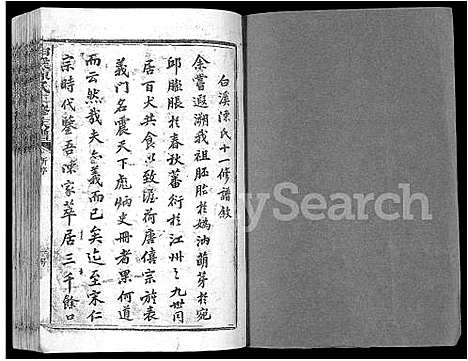 白溪陳氏十一修譜敘
余嘗遐溯我祖胚胎於媯汭萌芽於宛
邱膨脹於春秋蕃衍於江州之九世同
居百犬共食以致渥荷唐僖宗旌表
義門名震天下彪炳史冊者果何道
而云然哉夫亦義而已矣迄至宋仁
宗時代鑒吾陳家萃居三千餘口
MySearch